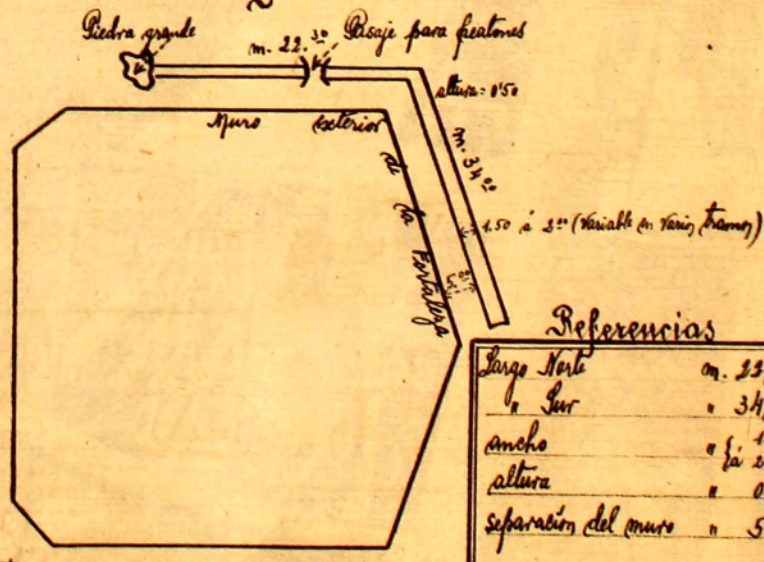 Piedra grande
m. 22.30 Pasaje para peatones
altura = 0'50
Muro exterior de la Fortaleza
m. 34.00
1.50 á 2.00 (variable en varios tramos)
Referencias
Largo Norte m. 22
" Sur " 34
ancho " { 1
á 2
altura " 0
separación del muro " 5